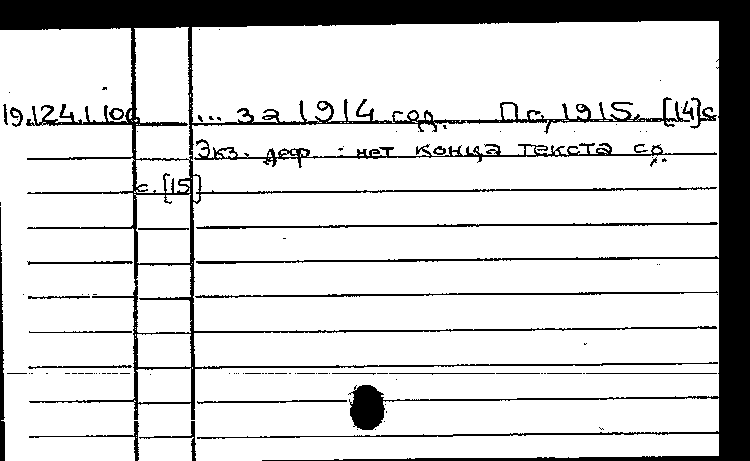 19.124.1.106 ... за 1914 год. Пг, 1915. [14]с
Экз. деф. : нет конца текста со
с. [15]